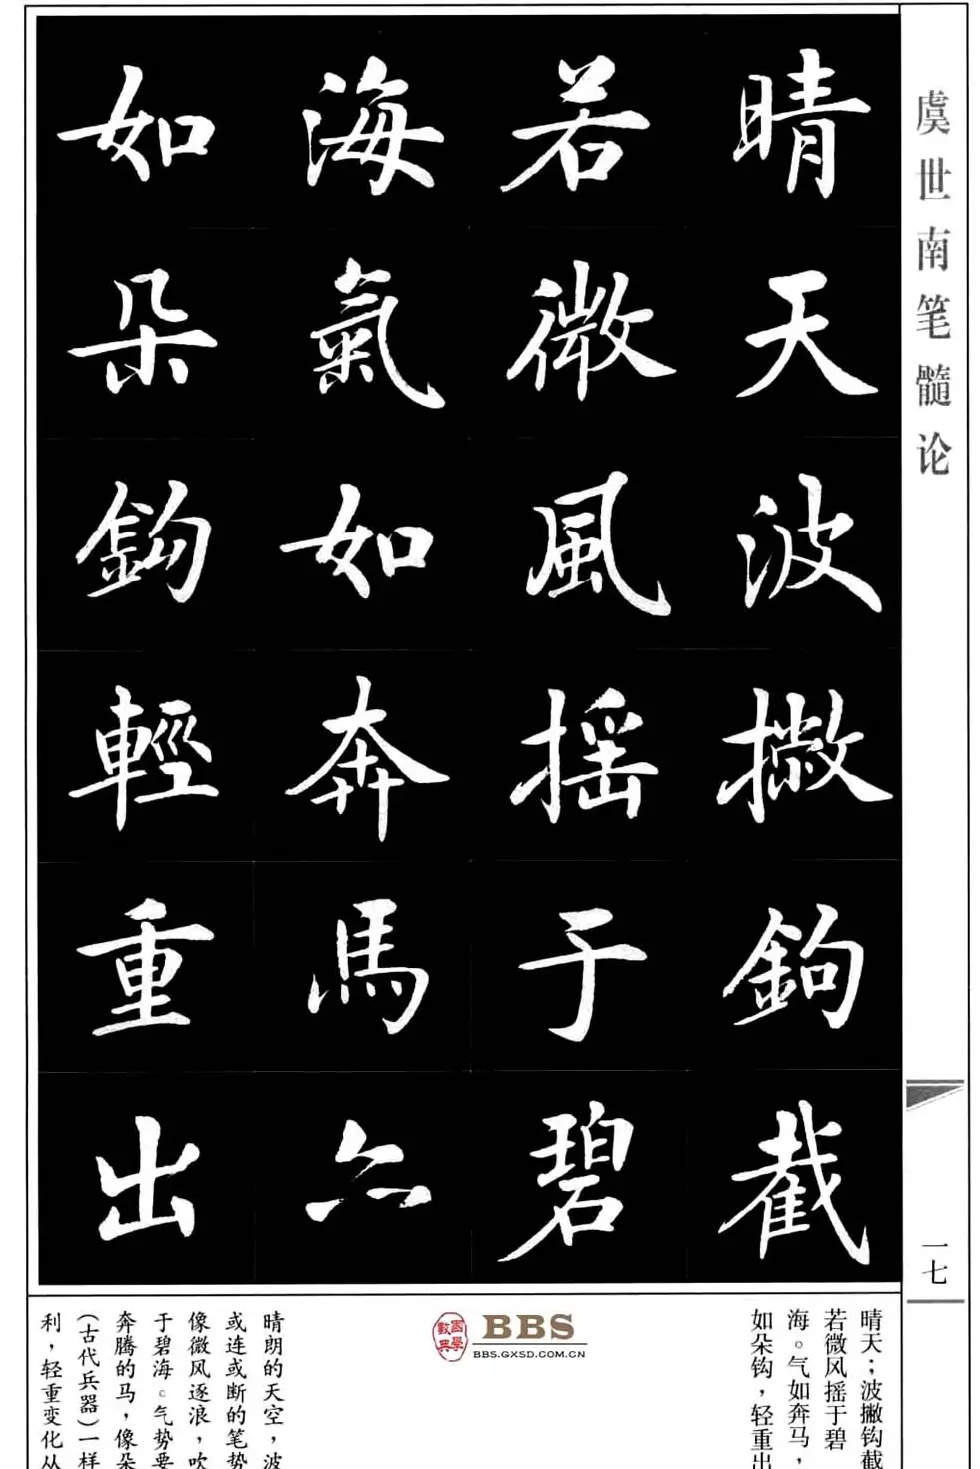 虞世南笔髓论
一七
晴天波撇鉤截
若微風摇于碧
海氣如奔馬亦
如朵鉤輕重出
晴天；波撇钩截
若微风摇于碧
海。气如奔马，
如朵钩，轻重出
國學數典
BBS
BBS.GXSD.COM.CN
晴朗的天空，波
或连或断的笔势
像微风逐浪，吹
于碧海。气势要
奔腾的马，像朵
(古代兵器)一样
利，轻重变化从